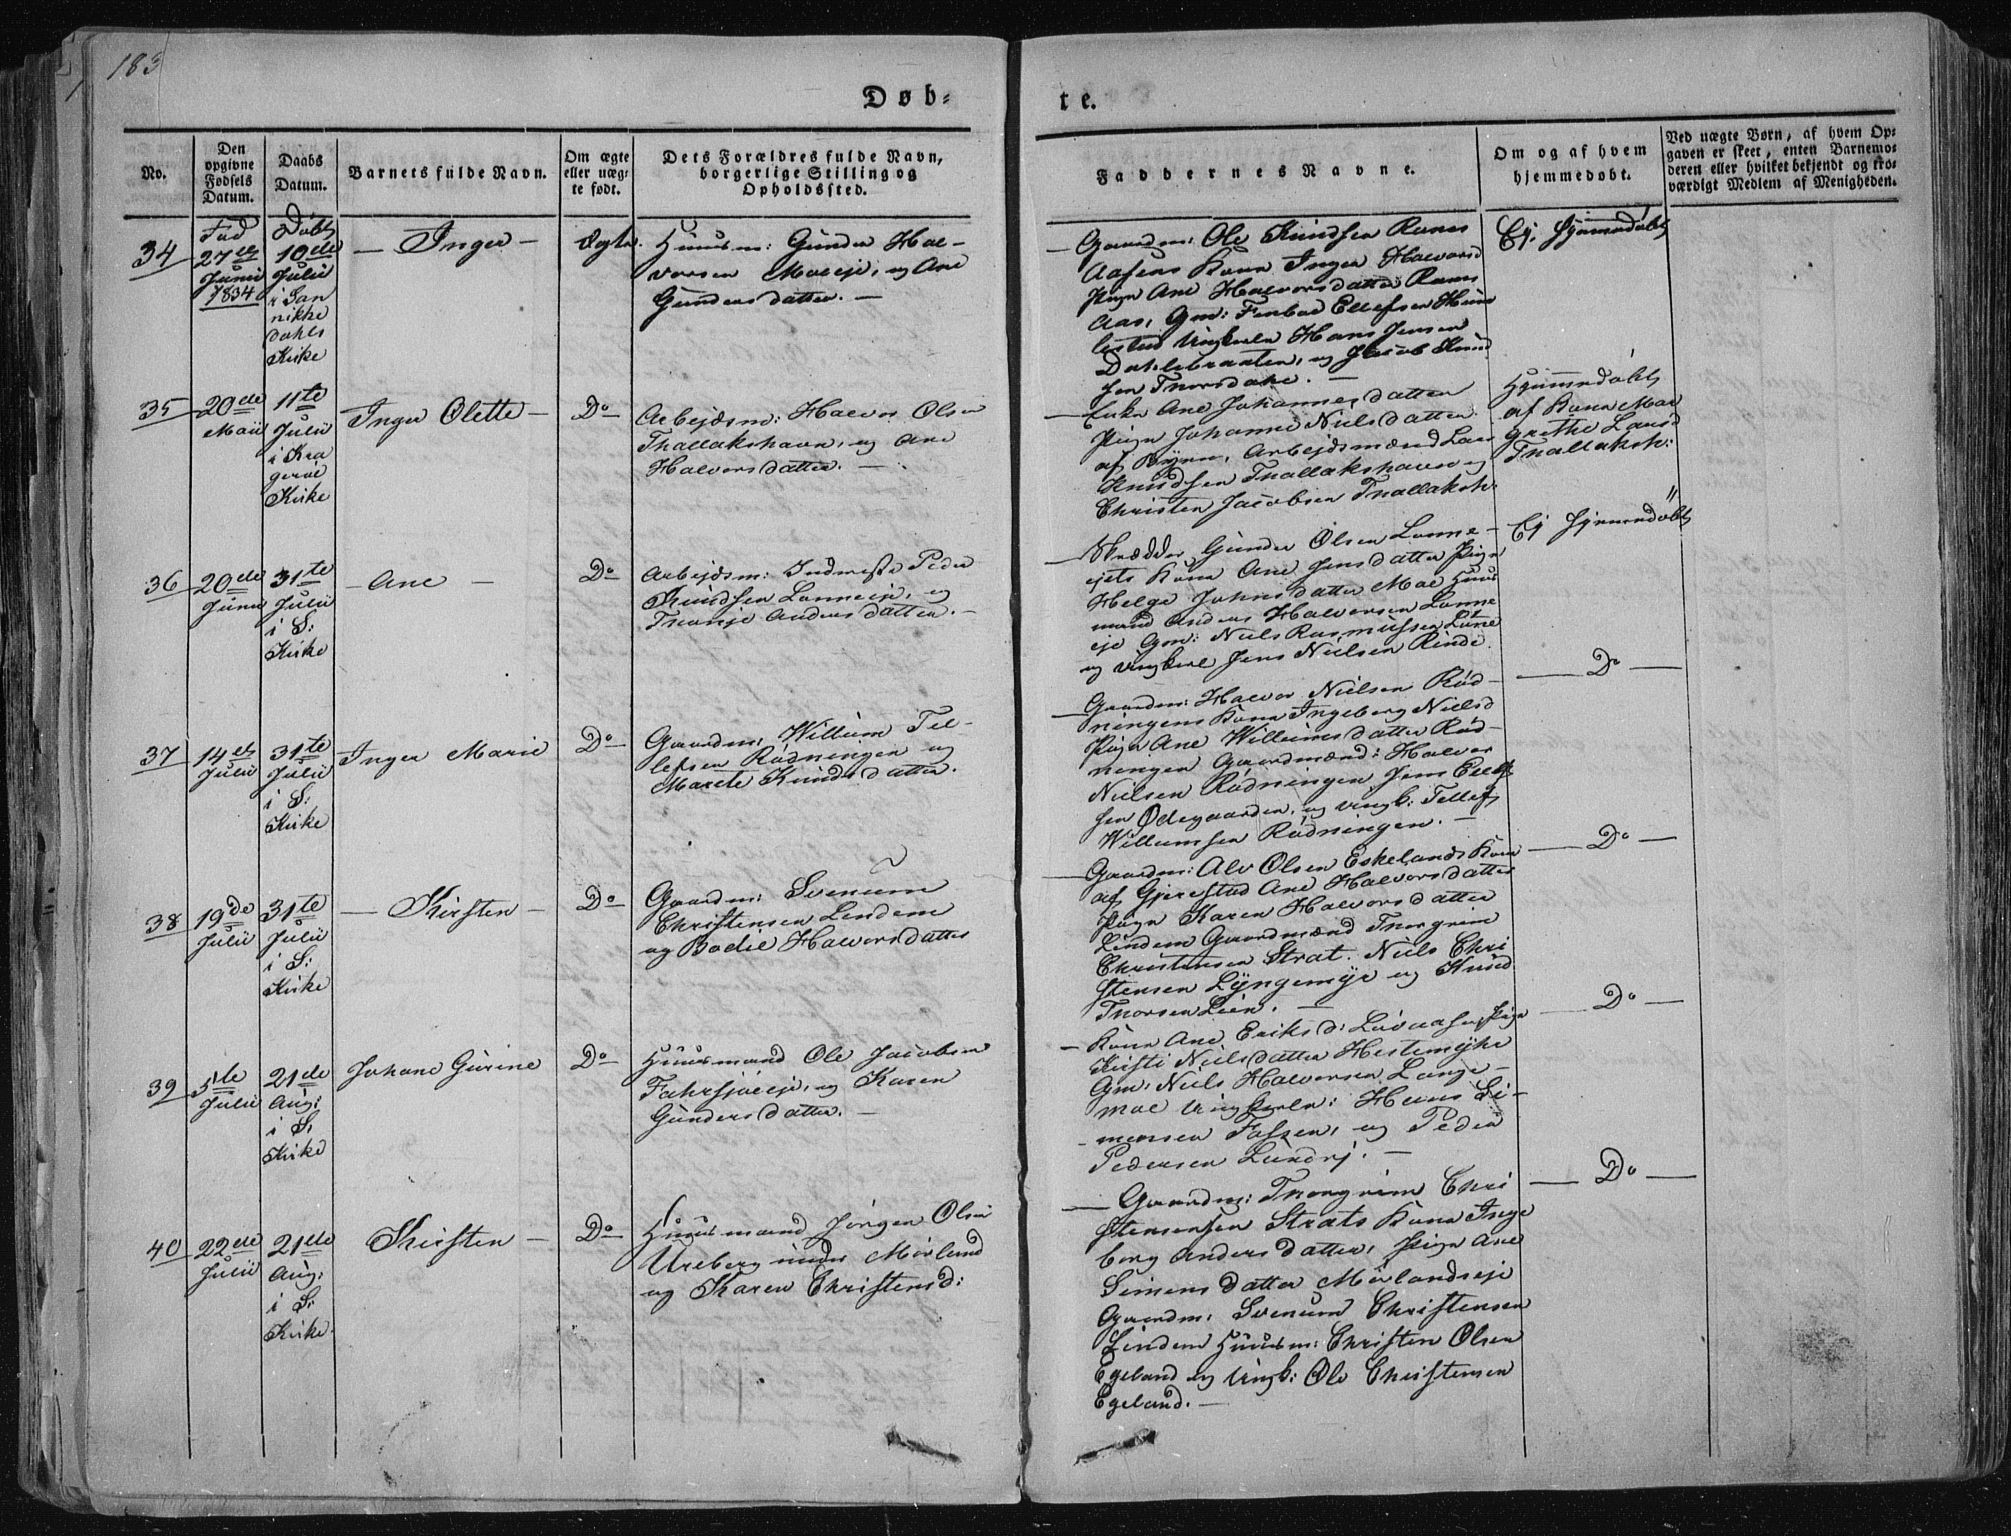 183
Døb-
te.
No.
Den opgivne Fødsels Datum.
Daabs Datum.
Barnets fulde Navn.
Om ægte eller uægte født.
Dets Forældres fulde Navn, borgerlige Stilling og Opholdssted.
Faddernes Navne.
Om og af hvem hjemmedøbt.
Ved uægte Børn, af hvem Opgaven er skeet, enten Barnemoderen eller hvilket bekjendt og troværdigt Medlem af Menigheden.
34
Fød
27de
Junii
1834
Døbt
10de
Julii
i San
nikke
dahls
Kirke
- Inger -
ægte.
Huusm: Gunder Hal-
vorsen Moeeje, og Ane
Gundersdatter. -
- Gaardm: Ole Knudsen Ranes
Aasens Kone Inger Halvorsd
Pige Ane Halvorsdatter Ranes
Aas, Gm: Ellefsen
Ungkarle Hans Jensen
og Jacob Knud
sen
Ej hjemmedøbt
35
20de
Maii
11te
Julii
i Kra
gerøe
Kirke
Inger Olette -
Do
Arbejdsm: Halvor Olsen
Thallakshavn, og Ane
Halvorsdatter. -
- Enke Ane Johannesdatter
Pige Johanne Nielsdatter
af Byen, Arbejdsmænd Lars
Knudsen Thallakshavn og
Christen Jacobsen Thallaksh:
Hjemmedøbt
af Kone Mar
grethe Larsd
Thallaksh:
36
20de
Junii
31te
Julii
i S:
Kirke
- Ane -
Do
Arbejdsm: Inderste Peder
Knudsen Lonneeje, og
Tronje Andersdatter. -
- Skrædder Gunder Olsen Lonne-
ejets Kone Ane Jensdatter Pige
Helge Johnsdatter Moe Huus
mand Anders Halvorsen Lonne
eje Gm: Niels Rasmussen Lone
og Ungkarl Jens Nielsen Rinde.
Ej hjemmedøbt
37
14de
Julii
31te
Julii
i S:
Kirke
Inger Marie
Do
Gaardm: Willum Tel-
lefsen Rødningen og
Marete Knudsdatter.
- Gaardm: Halvor Nielsen Rød-
ningens Kone Ingeborg Nielsd
Pige Ane Willumsdatter Rød-
ningen Gaardmænd: Halvor
Nielsen Rødningen Jens Ellef
sen Ødegaarden, og Ungk: Tellef
Willumsen Rødningen. -
Do
38
19de
Julii
31te
Julii
i S:
Kirke
- Kirsten -
Do
Gaardm: Svenum
Christensen Lindem
og Bodil Halvorsdatter
- Gaardm: Alv Olsen Eskelands Kone
af Gjerestad Ane Halvorsdatter
Pige Karen Halvorsdatter
Lindem Gaardmænd Thorgrim
Christensen Strat. Niels Chri
stensen Lyngemyr og Knud
Thorsen Lien. -
Do
39
5te
Julii
21de
Aug:
i S:
Kirke
Johane Gurine
Do
Huusmand Ole Jacobsen
Farsjøeeje, og Karen
Gundersdatter. -
- Kone Ane Eriksd: Pige
Kirsti Nielsdatter Hestemyhr
Gm: Niels Halvorsen Lange-
moe Ungkarle: Hans Si-
monsen Fossen, og Peder
Pedersen
Do
40
22de
Julii
21de
Aug:
i S:
Kirke.
Kirsten -
Do
Huusmand Jørgen Olsen
Ureberg under Mørland
og Karen Christensd:
- Gaardm: Thorgrim Chri
stensen Strats Kone Inge
borg Andersdatter, Pige Ane
Simensdatter Mørlandseje
Gaardm: Svenum Christensen
Lindem Huusm: Christen Olsen
Egeland og Ungk: Ole Christensen
Egeland. -
Do